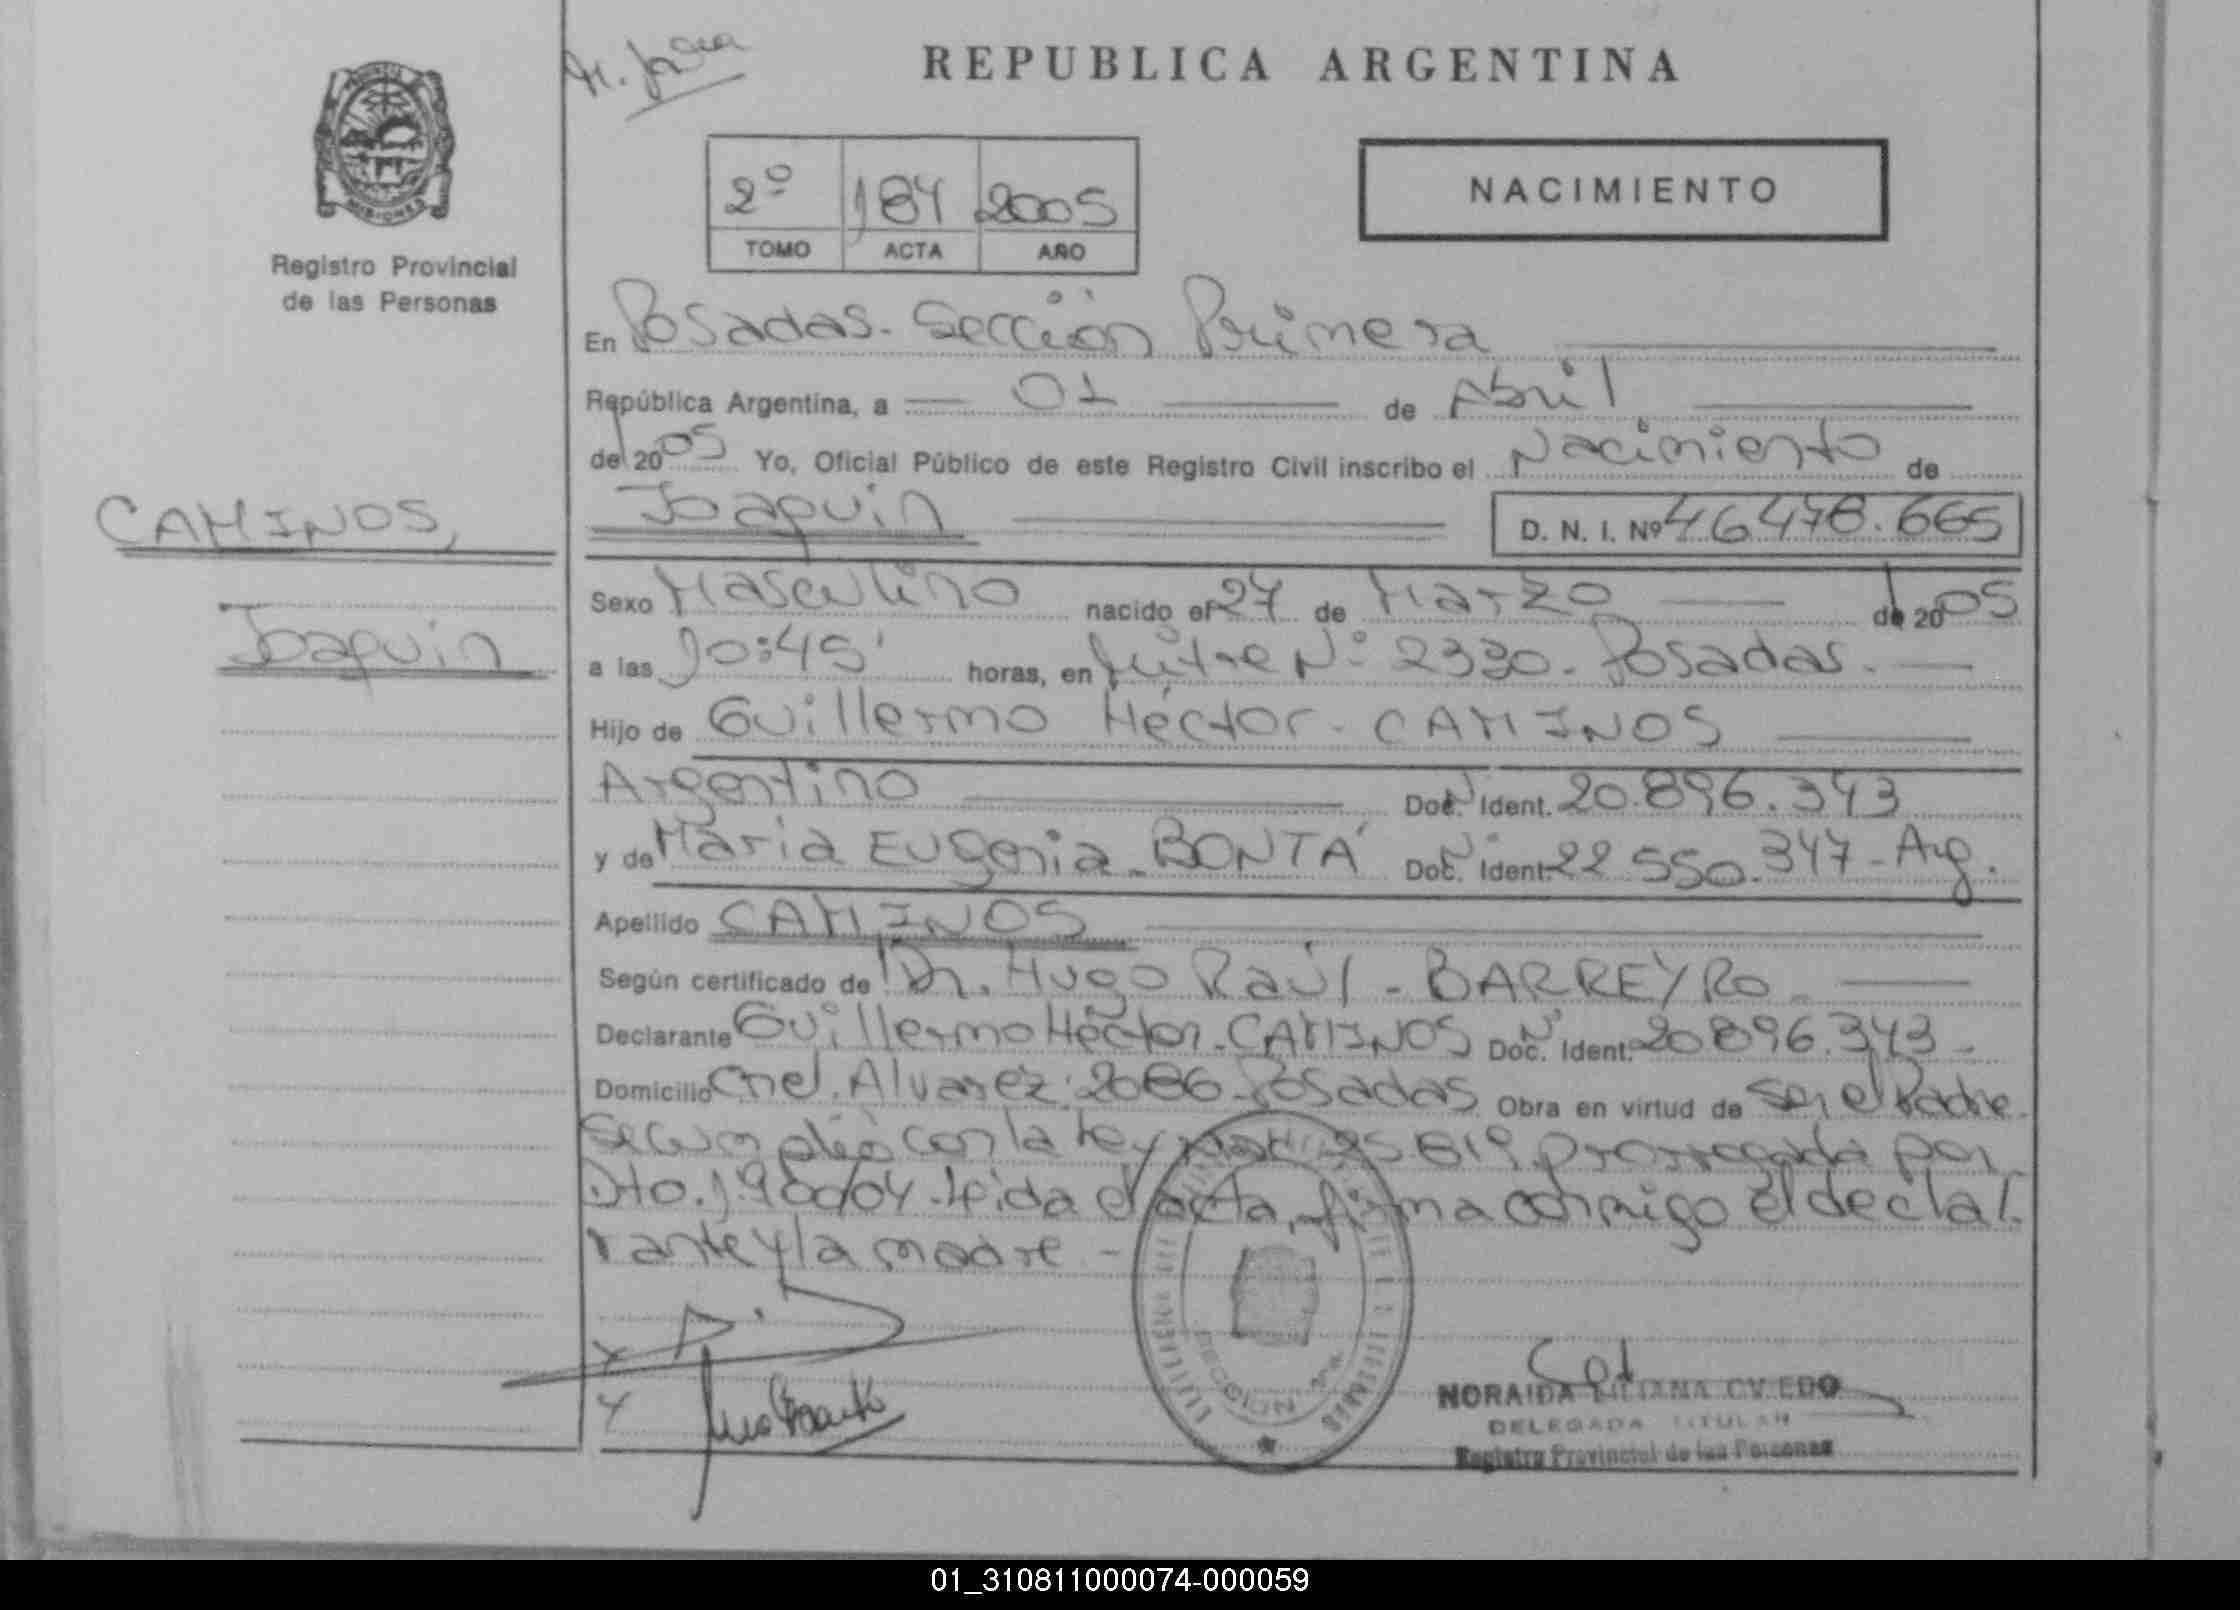 REPUBLICA ARGENTINA
PROVINCIA
MISIONES
Registro Provincial
de las Personas
2º 184 2005
TOMO ACTA AÑO
NACIMIENTO
En Posadas - Sección Primera
República Argentina, a 01 de Abril
del 2005 Yo, Oficial Público de este Registro Civil inscribo el Nacimiento de
CAMINOS,
Joaquin
Joaquin D. N. I. Nº 46.478.665
Sexo Masculino nacido el 27 de Marzo de 2005
a las 10:45' horas, en Mitre Nº 2330 - Posadas.
Hijo de Guillermo Héctor - CAMINOS
Argentino Doc. Nº Ident. 20.896.343
y de Maria Eugenia - BONTÁ Doc. Nº Ident. 22.550.347 - Arg.
Apellido CAMINOS
Según certificado de Dr. Hugo Raúl - BARREYRO -
Declarante Guillermo Héctor - CAMINOS Doc. Nº Ident. 20.896.343 -
Domicilio Cnel. Alvarez 2086 - Posadas Obra en virtud de ser el Padre
Se cumplió con la Ley 25.819 prorrogada por
Dto. 190/04 - Leida el acta, firma conmigo el decla
rante y la madre -
NORAIDA LILIANA OVIEDO
DELEGADA TITULAR
Registro Provincial de las Personas
01_310811000074-000059